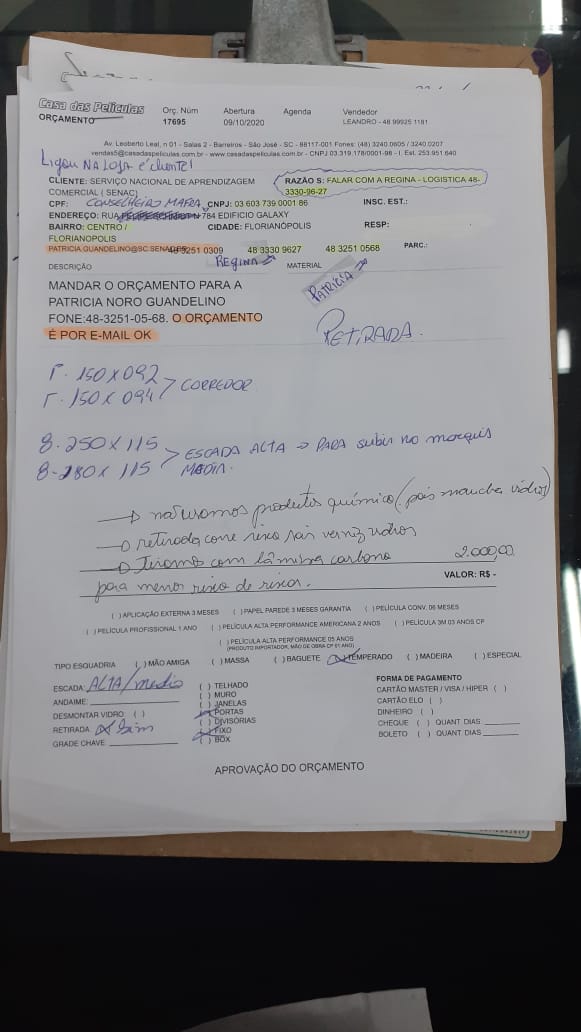 Casa das Películas
ORÇAMENTO
Orç. Núm
17695
Abertura
09/10/2020
Agenda
Vendedor
LEANDRO - 48 99925 1181
Av. Leoberto Leal, n 01 - Salas 2 - Barreiros - São José - SC - 88117-001 Fones: (48) 3240.0605 / 3240.0207
vendas5@casadaspeliculas.com.br - www.casadaspeliculas.com.br - CNPJ 03.319.178/0001-98 - I. Est. 253.951.640
Ligou NA LOJA é cliente!
CLIENTE: SERVIÇO NACIONAL DE APRENDIZAGEM
COMERCIAL ( SENAC)
RAZÃO S: FALAR COM A REGINA - LOGISTICA 48-
3330-96-27
CPF: CONSELHEIRO MAFRA CNPJ: 03 603 739 0001 86 INSC. EST.:
ENDEREÇO: RUA 784 EDIFICIO GALAXY
BAIRRO: CENTRO /
FLORIANOPOLIS
CIDADE: FLORIANÓPOLIS RESP:
PATRICIA.GUANDELINO@SC.SENAC.BR 48 3251 0309 48 3330 9627 48 3251 0568 PARC.:
REGINA
DESCRIÇÃO MATERIAL
PATRÍCIA
MANDAR O ORÇAMENTO PARA A
PATRICIA NORO GUANDELINO
FONE:48-3251-05-68. O ORÇAMENTO
É POR E-MAIL OK
RETIRADA.
1. 150 X 092
1. 150 X 094 > CORREDOR
8. 250 X 115
8- 280 X 115 > ESCADA ALTA → PARA subir no marquis
MEDIA.
→ não usamos produtos químico (pois mancha vidros)
→ retirada corre risco sair verniz vidros
→ Tiramos com lâmina carbono
para menor risco de riscar.
2.000,00
VALOR: R$ -
( ) APLICAÇÃO EXTERNA 3 MESES ( ) PAPEL PAREDE 3 MESES GARANTIA ( ) PELÍCULA CONV. 06 MESES
( ) PELÍCULA PROFISSIONAL 1 ANO ( ) PELÍCULA ALTA PERFORMANCE AMERICANA 2 ANOS ( ) PELÍCULA 3M 03 ANOS CP
( ) PELÍCULA ALTA PERFORMANCE 05 ANOS
(PRODUTO IMPORTADOR, MÃO DE OBRA CP 01 ANO)
TIPO ESQUADRIA ( ) MÃO AMIGA ( ) MASSA ( ) BAGUETE (X) TEMPERADO ( ) MADEIRA ( ) ESPECIAL
ESCADA: ALTA/medio
ANDAIME:
DESMONTAR VIDRO ( )
RETIRADA (X) Sim
GRADE CHAVE
( ) TELHADO
( ) MURO
( ) JANELAS
(X) PORTAS
( ) DIVISÓRIAS
(X) FIXO
( ) BOX
FORMA DE PAGAMENTO
CARTÃO MASTER / VISA / HIPER ( )
CARTÃO ELO ( )
DINHEIRO ( )
CHEQUE ( ) QUANT DIAS
BOLETO ( ) QUANT DIAS
APROVAÇÃO DO ORÇAMENTO